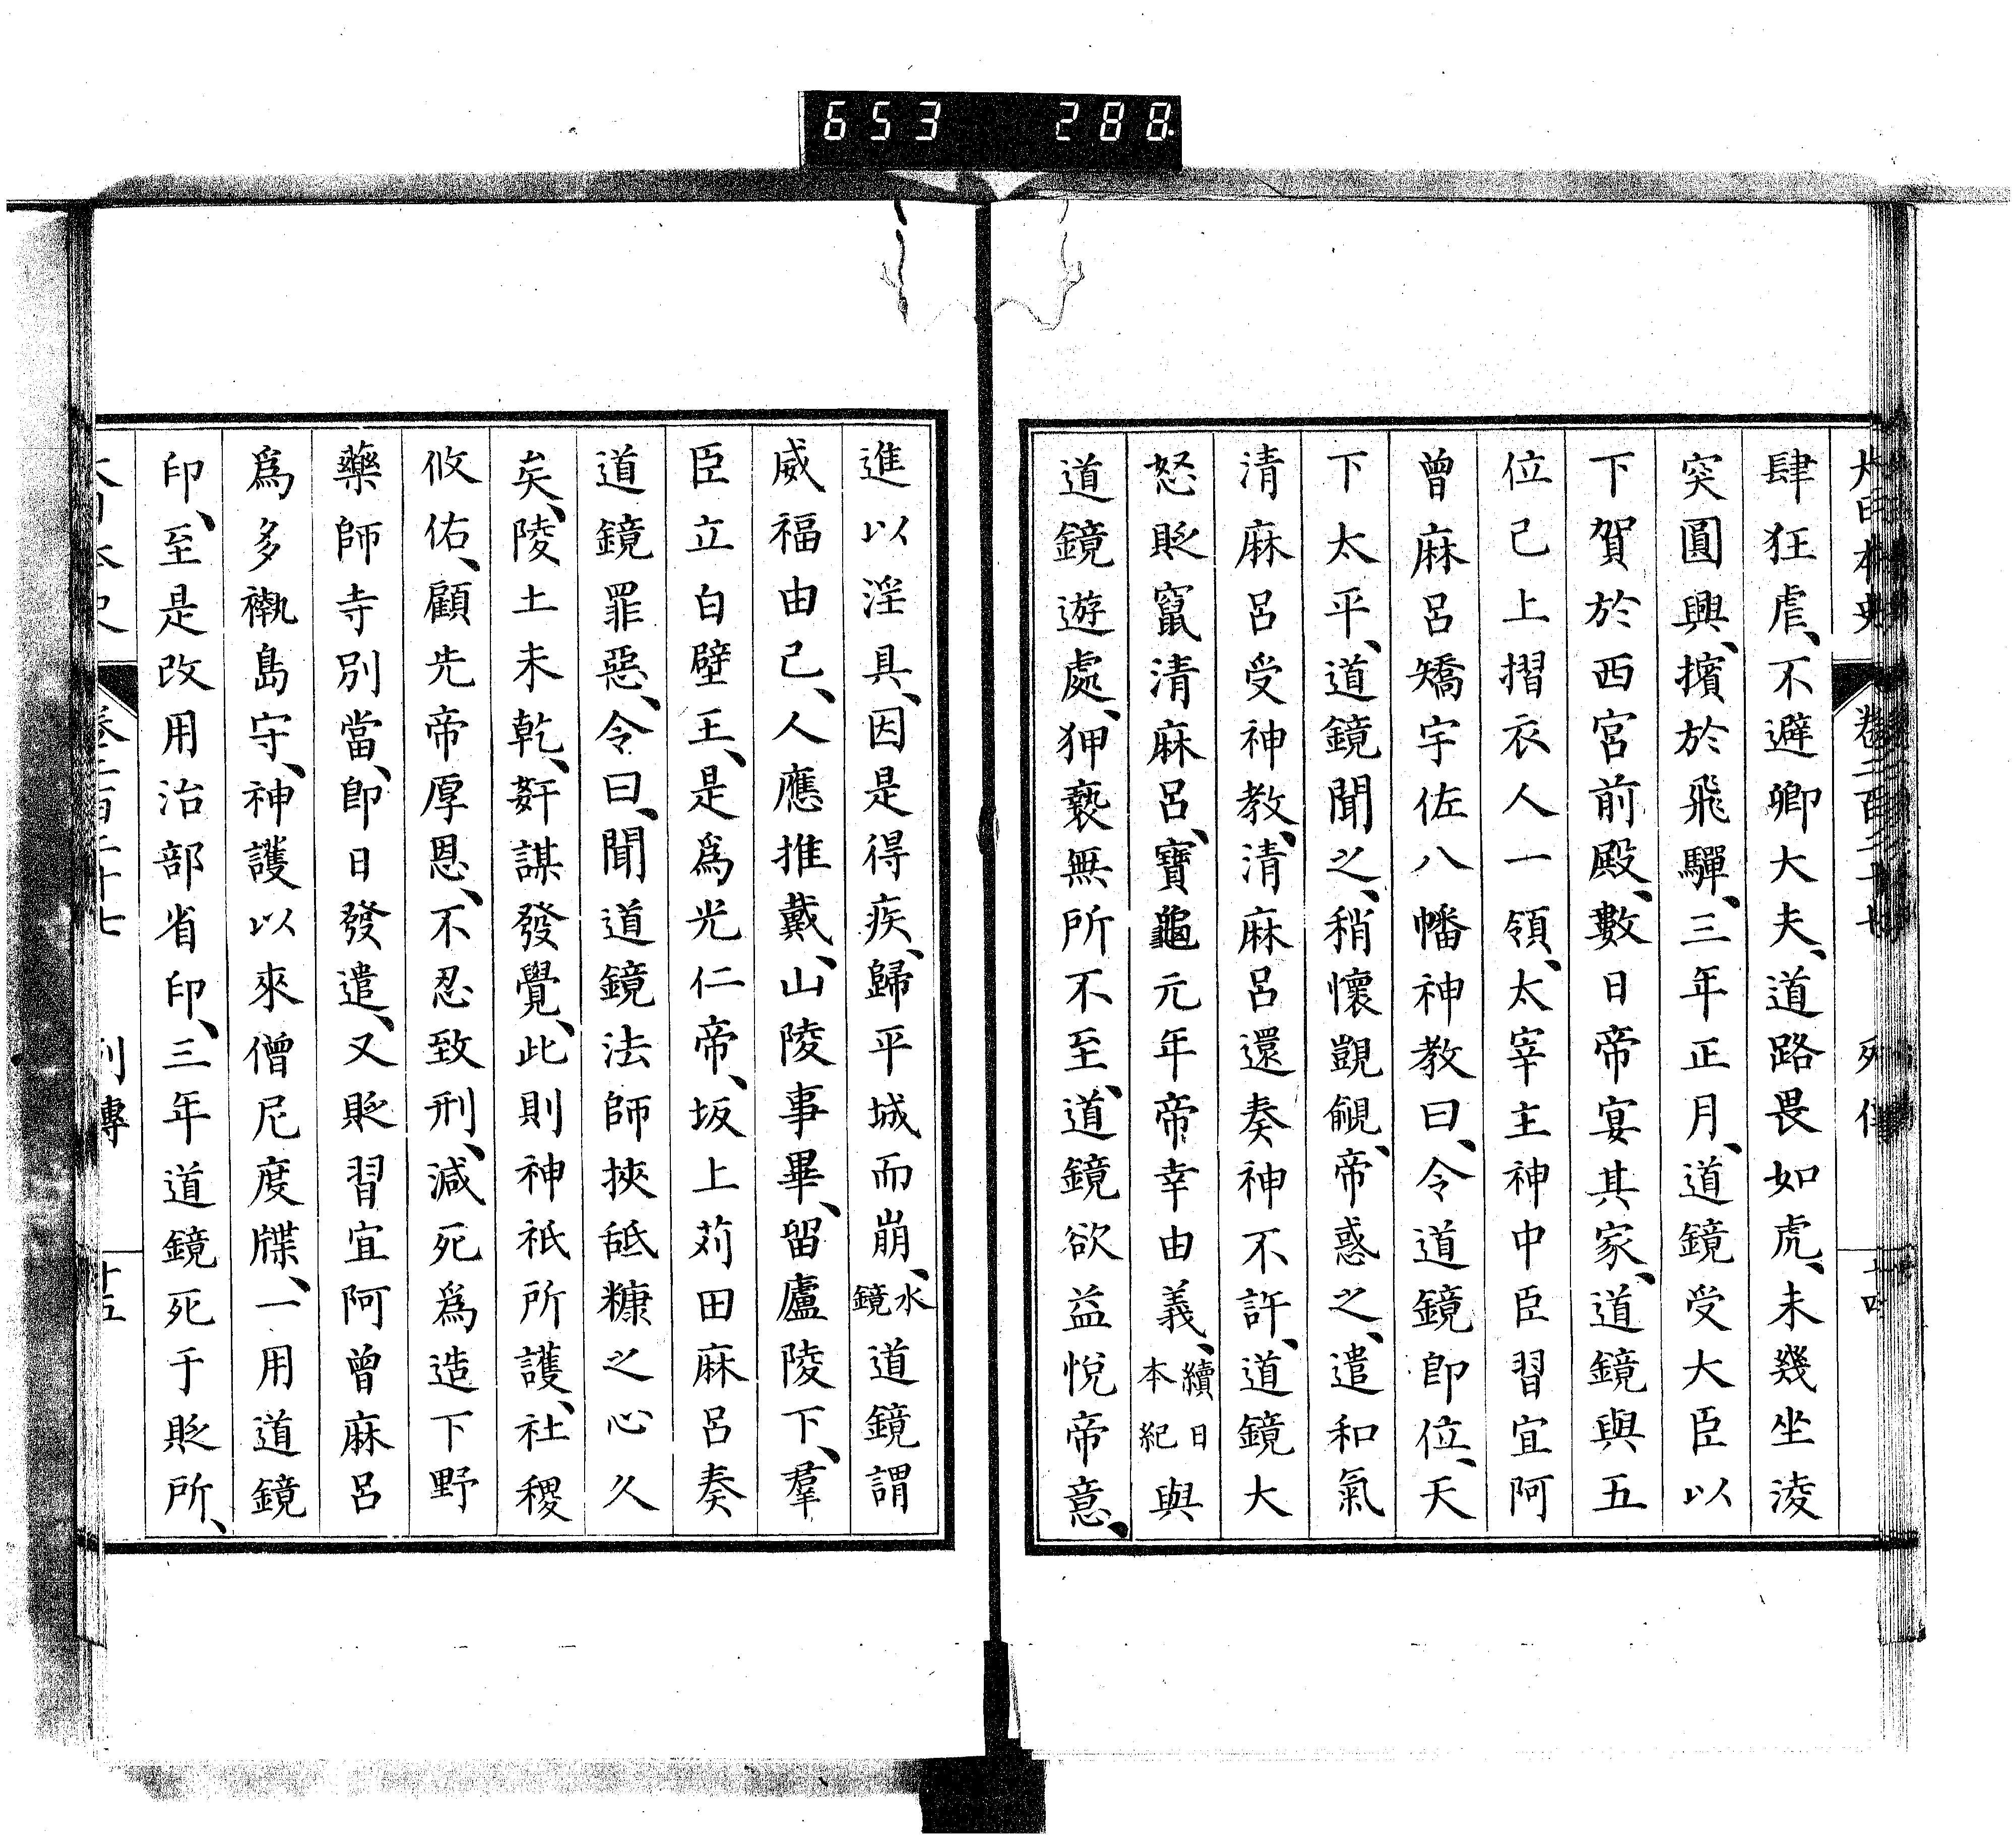 653 288
大日本史 卷二百二十七 列傳
肆狂虐、不避卿大夫、道路畏如虎、未幾坐淩
突圓興、擯於飛驒、三年正月、道鏡受大臣以
下賀於西宮前殿、數日帝宴其家、道鏡與五
位已上摺衣人一領、太宰主神中臣習宜阿
曾麻呂矯宇佐八幡神教曰、令道鏡卽位、天
下太平、道鏡聞之、稍懷覬覦、帝惑之、遣和氣
清麻呂受神教、清麻呂還奏神不許、道鏡大
怒貶竄清麻呂、寶龜元年帝幸由義、續日本紀與
道鏡遊處、狎褻無所不至、道鏡欲益悅帝意、
進以淫具、因是得疾、歸平城而崩、水鏡道鏡謂
威福由己、人應推戴、山陵事畢、留廬陵下、羣
臣立白壁王、是爲光仁帝、坂上苅田麻呂奏
道鏡罪惡、令曰、聞道鏡法師挾舐糠之心久
矣、陵土未乾、姧謀發覺、此則神祇所護、社稷
攸佑、顧先帝厚恩、不忍致刑、減死爲造下野
藥師寺別當、卽日發遣、又貶習宜阿曾麻呂
爲多褹島守、神護以來僧尼度牒、一用道鏡
印、至是改用治部省印、三年道鏡死于貶所、
大日本史 卷二百二十七 列傳 十五